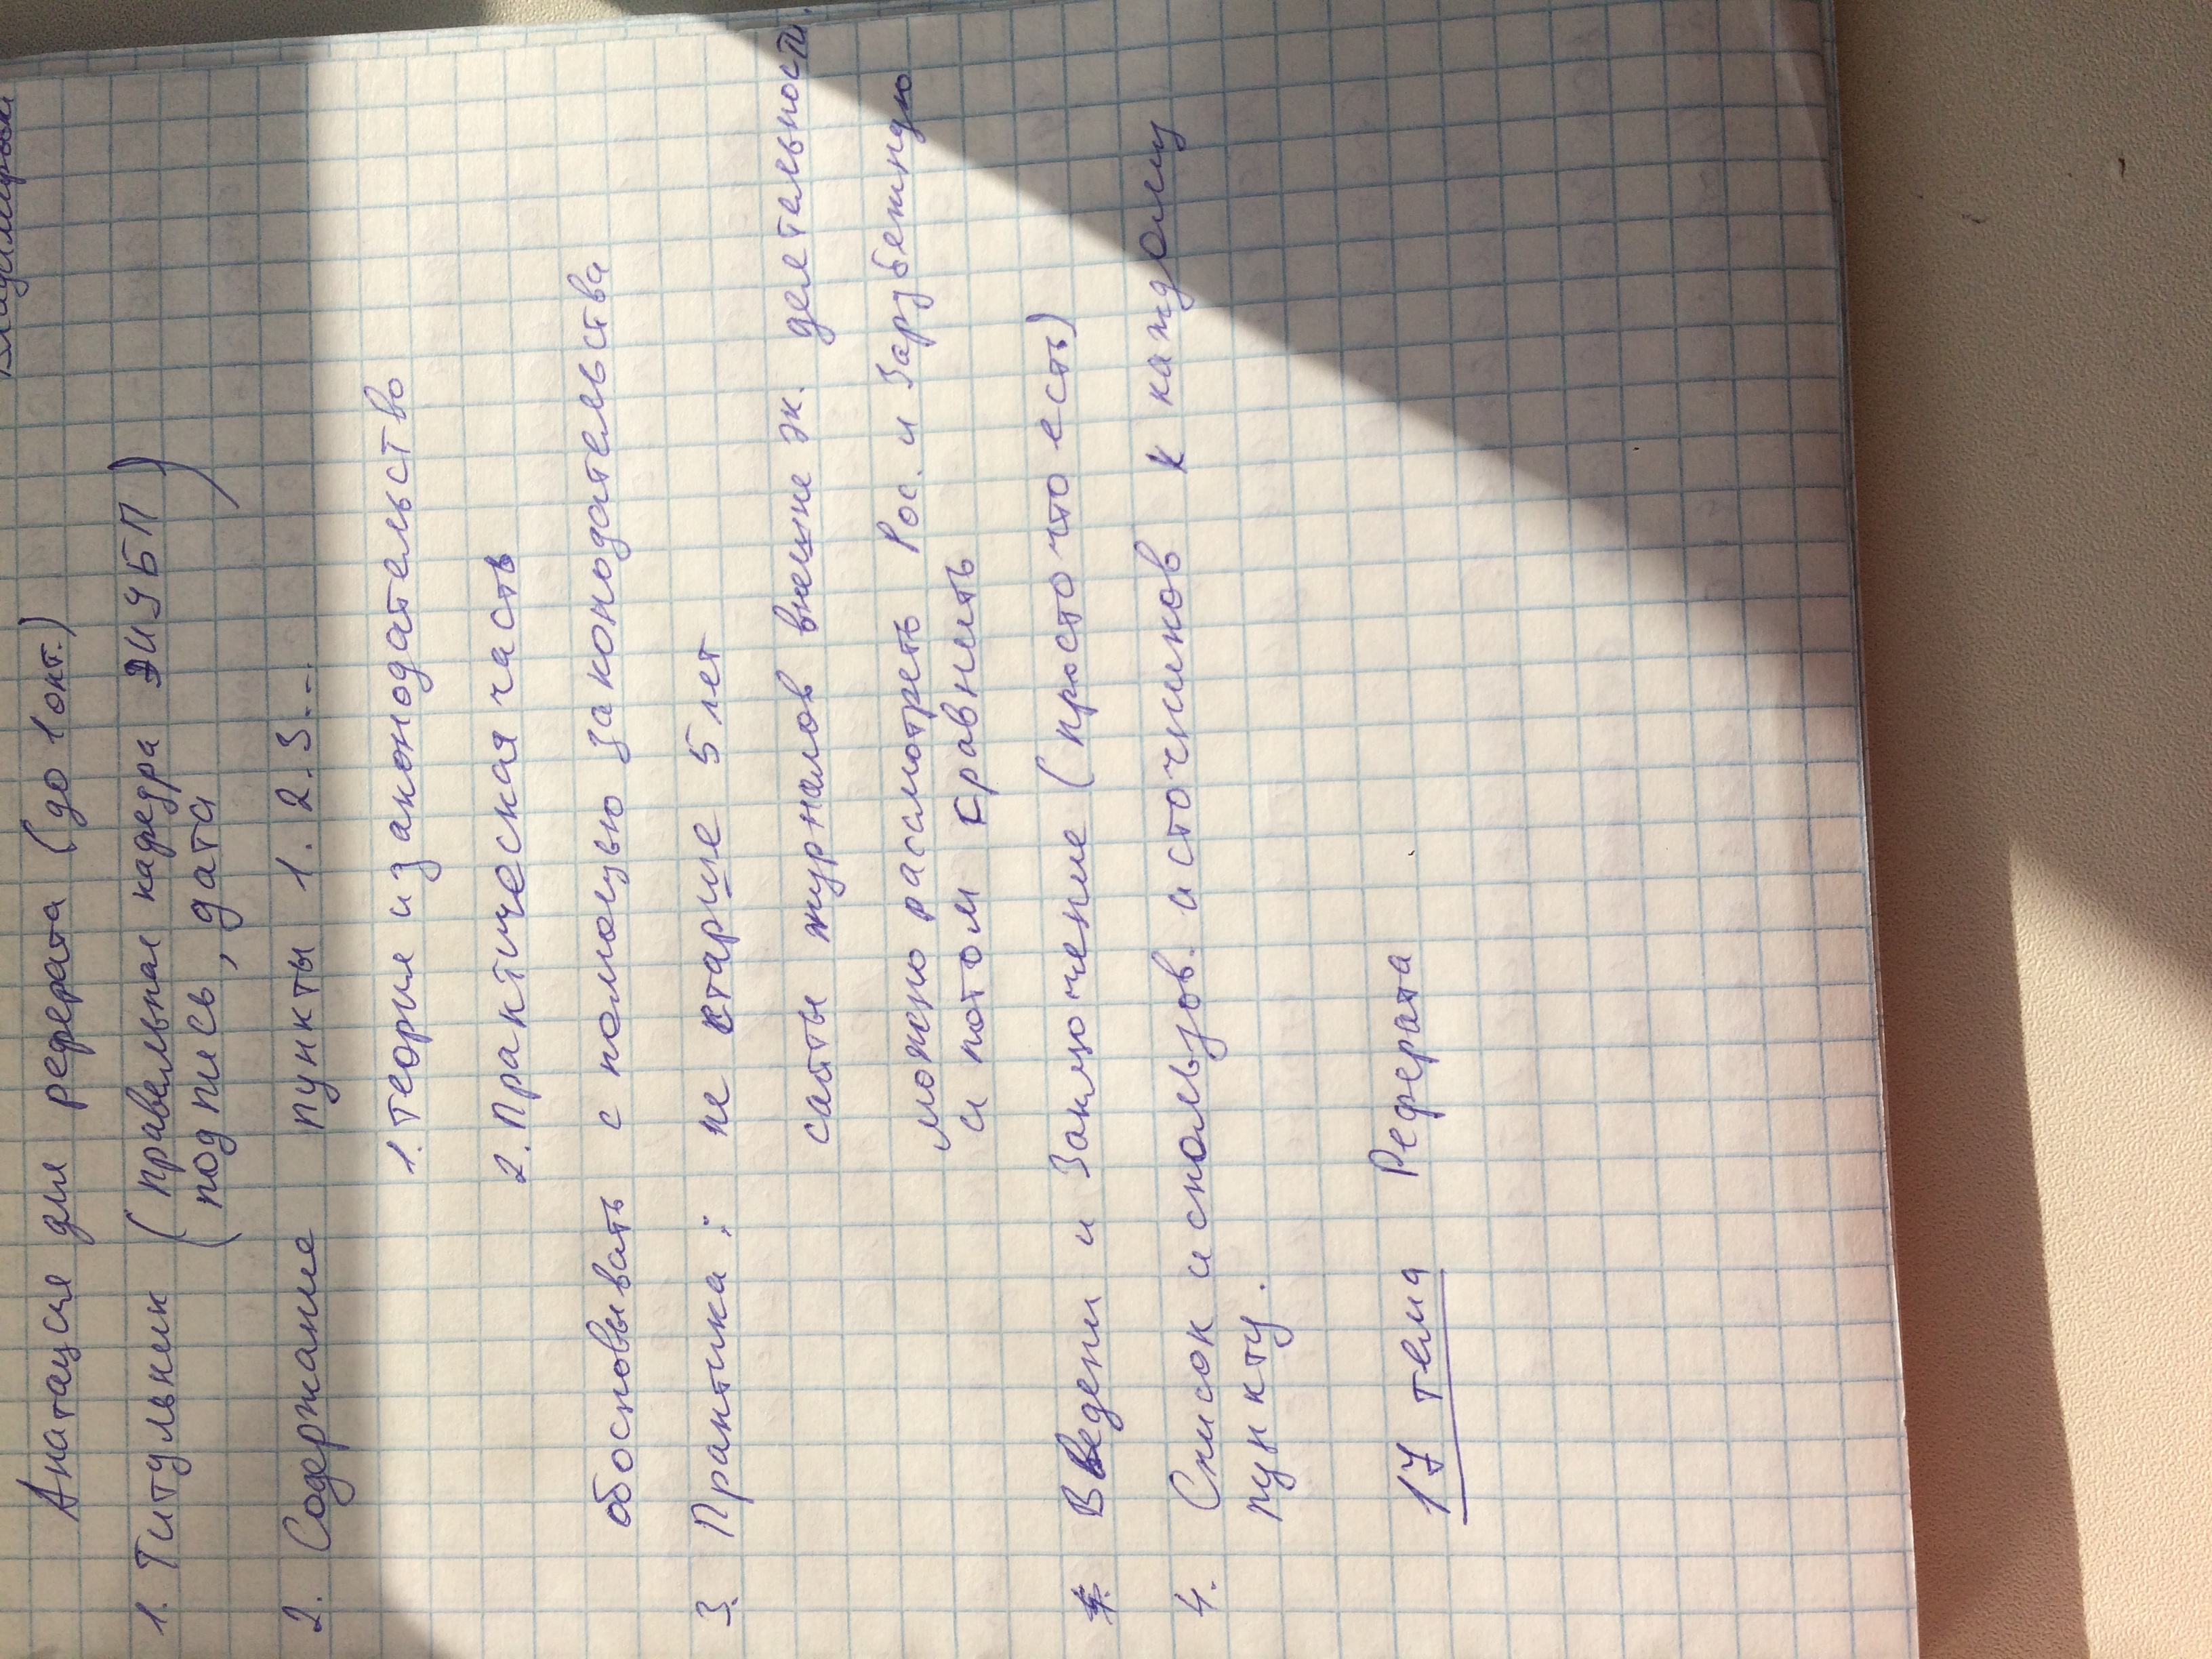 Анатация для реферата (до 1 окт.)
1. Титульник (правельная кафедра ЭИУБП)
(подпись, дата)
2. Содержание пункты 1. 2. 3...
1. Теория и законодательство
2. Практическая часть
обосновывать с помощью законодательства
3. Практика: не старше 5 лет
сайты журналов внешне эк. деятельности.
можно рассмотреть Рос. и Зарубежную
и потом сравнить
Введени и Заключение (просто что есть)
4. Список использов. источников к каждому
пункту.
17 тема Реферата